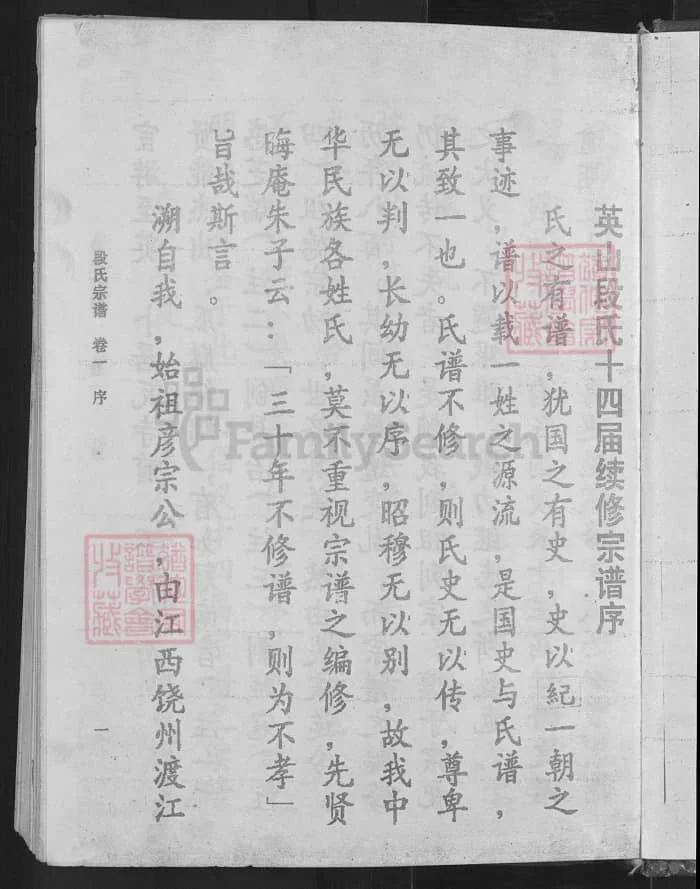 英山段氏十四届续修宗谱序
氏之有谱，犹国之有史，史以紀一朝之
事迹，谱以载一姓之源流，是国史与氏谱，
其致一也。氏谱不修，则氏史无以传，尊卑
无以判，长幼无以序，昭穆无以别，故我中
华民族各姓氏，莫不重视宗谱之编修，先贤
晦庵朱子云：「三十年不修谱，则为不孝」
旨哉斯言。
溯自我，始祖彦宗公，由江西饶州渡江
段氏宗谱 卷一 序
一
FamilySearch